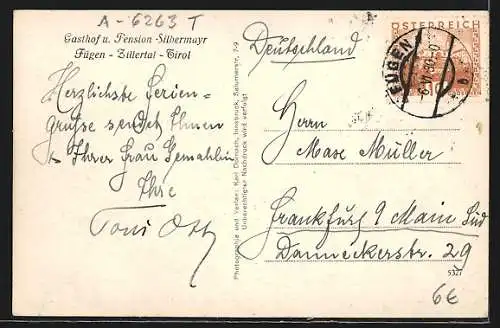 A-6263 T
Gasthof u. Pension Silbermayr
Fügen - Zillertal - Tirol
Herzlichste Ferien-
grüsse sendet Ihnen
u. Ihrer Frau Gemahlin
Ihre
Toni Ott
7-9
Photographie und Verlag: Karl Innsbruck,
Unberechtigter Nachdruck wird verfolgt
ÖSTERREICH
FÜGEN
Deutschland
Herrn
Max Müller
Frankfurt a Main Süd
Danneckerstr. 29
5327
6€